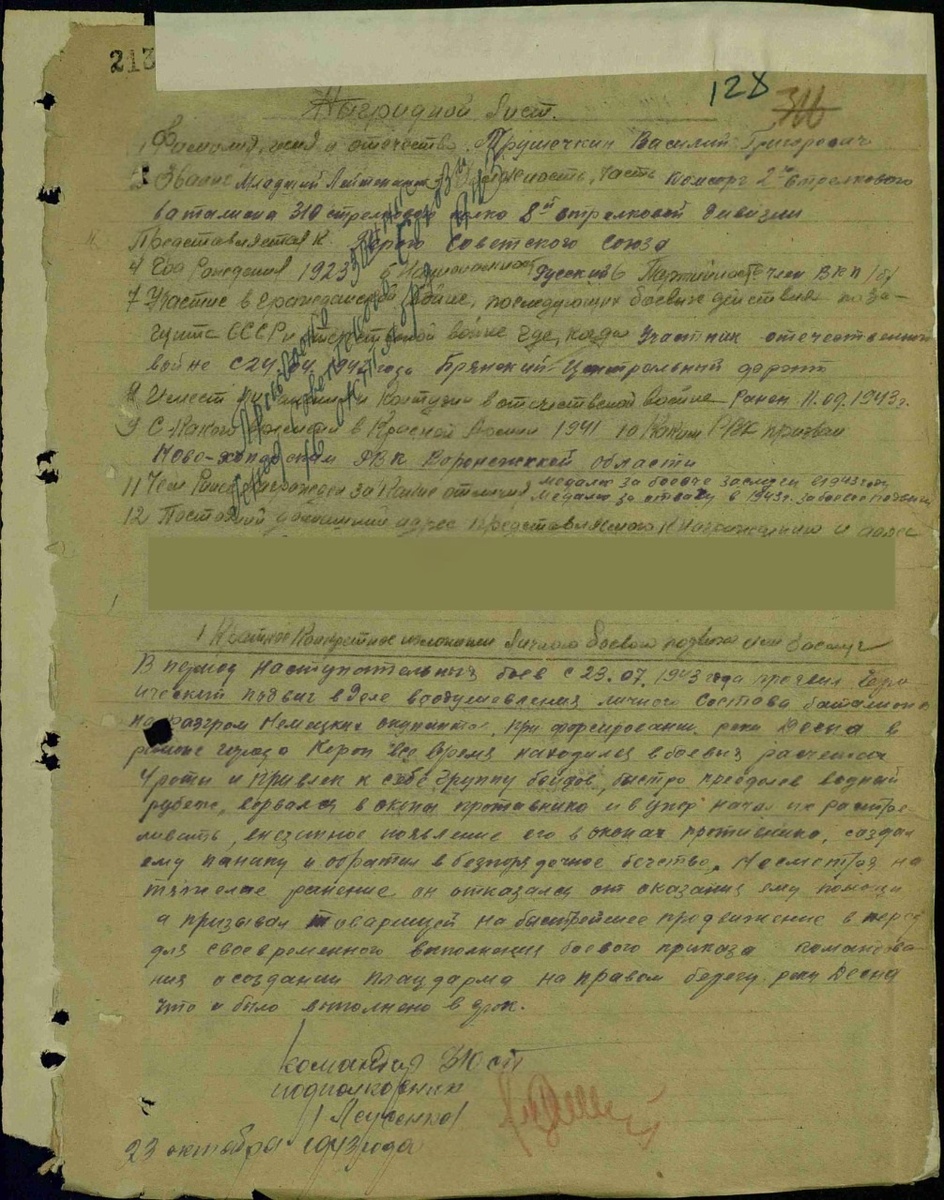 213
128
Наградной лист.
1 Фамилия, имя и отчество Трушечкин Василий Григорович
2 Звание Младший Лейтенант должность, часть комсорг 2го стрелкового
баталиона 310 стрелкового полка 8й стрелковой дивизии
Представляется к Герою Советского Союза
4 Год рождения 1923 5 Национальность Русский 6 Партийность член ВКП(б)
7 Участие в гражданской войне, последующих боевых действиях по за-
щите СССР и отечественной войне где, когда Участник отечественной
войне с 1942 года Брянский-Центральный фронт
8 Имеет ли ранения и контузии в отечественной войне Ранен 11.09.1943г.
9 С какого времени в Красной Армии 1941 10 Каким РВК призван
Ново-хоперским РВК Воронежской области
11 Чем ранее награжден за какие отличия медаль за боевые заслуги в 1943 году
медаль за отвагу в 1943г. за боевые подвиги
12 Постоянный домашний адрес представляемого к награждению и адрес
Присвоено звание
Героя Советского Союза
16 окт
1 Краткое конкретное изложение личного боевого подвига или заслуг
В период наступательных боев с 23.07.1943 года проявил геро-
ический подвиг в деле воодушевления личного состава баталиона
на разгром Немецких окупантов. При форсировании реки Десна в
районе города Короп все время находился в боевых расчетах
4 роты и привлек к себе группу бойцов, быстро преодолев водный
рубеж, ворвался в окопы противника и в упор начал их растре-
ливать, внезапное появление его в окопах противника, создал
ему панику и обратил в безпорядочное бегство. Несмотря на
тяжелае ранение он отказался от оказания ему помощи
а призывал товарищей на быстрейшее продвижение в перед
для своевременного выполнения боевого приказа командова-
ния о создании плацдарма на правом берегу реки Десна
что и было выполнено в срок.
командир 310 сп
подполковник
23 октября 1943 года